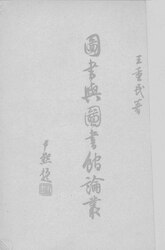 王重民著
圖書與圖書館論叢